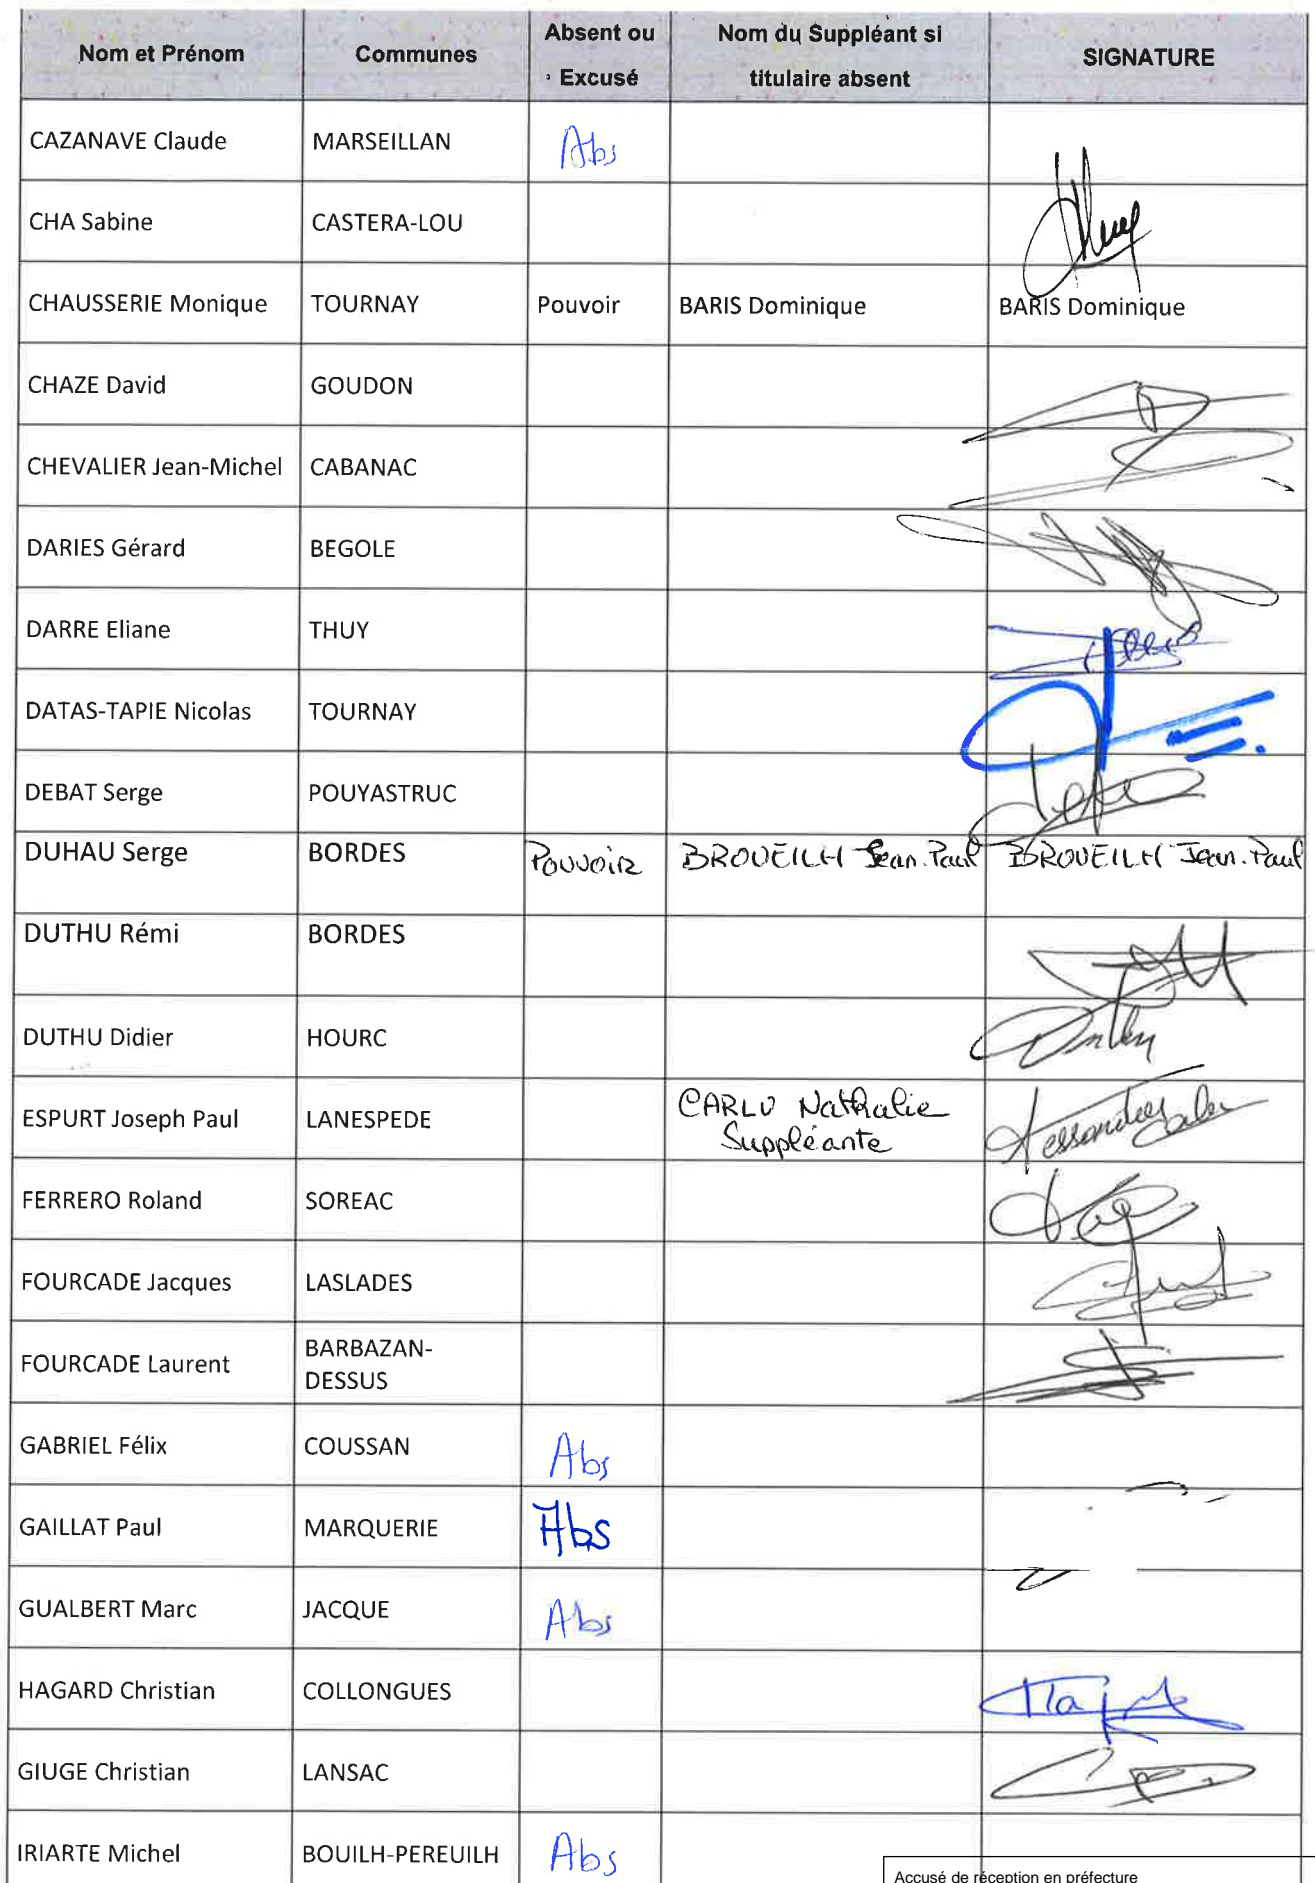 Nom et Prénom Communes Absent ou Excusé Nom du Suppléant si titulaire absent SIGNATURE
CAZANAVE Claude MARSEILLAN Abs
CHA Sabine CASTERA-LOU
CHAUSSERIE Monique TOURNAY Pouvoir BARIS Dominique BARIS Dominique
CHAZE David GOUDON
CHEVALIER Jean-Michel CABANAC
DARIES Gérard BEGOLE
DARRE Eliane THUY
DATAS-TAPIE Nicolas TOURNAY
DEBAT Serge POUYASTRUC
DUHAU Serge BORDES Pouvoir BROUEILH Jean.Paul BROUEILH Jean.Paul
DUTHU Rémi BORDES
DUTHU Didier HOURC
ESPURT Joseph Paul LANESPEDE CARLU Nathalie
Suppléante
FERRERO Roland SOREAC
FOURCADE Jacques LASLADES
FOURCADE Laurent BARBAZAN-
DESSUS
GABRIEL Félix COUSSAN Abs
GAILLAT Paul MARQUERIE Abs
GUALBERT Marc JACQUE Abs
HAGARD Christian COLLONGUES
GIUGE Christian LANSAC
IRIARTE Michel BOUILH-PEREUILH Abs
Accusé de réception en préfecture